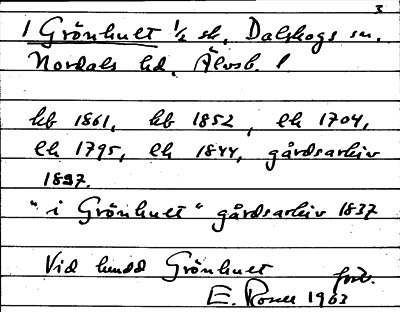 3
1 Grönhult 1/2 sk. Dalskogs sn.
Nordals hd, Älvsb. l
kb 1861, kb 1852, ek 1704,
ek 1795, ek 1844, gårdsarkiv
1837.
"i Grönhuet" gårdsarkiv 1837
Vid hundd Grönhuet
E. Rosell 1963